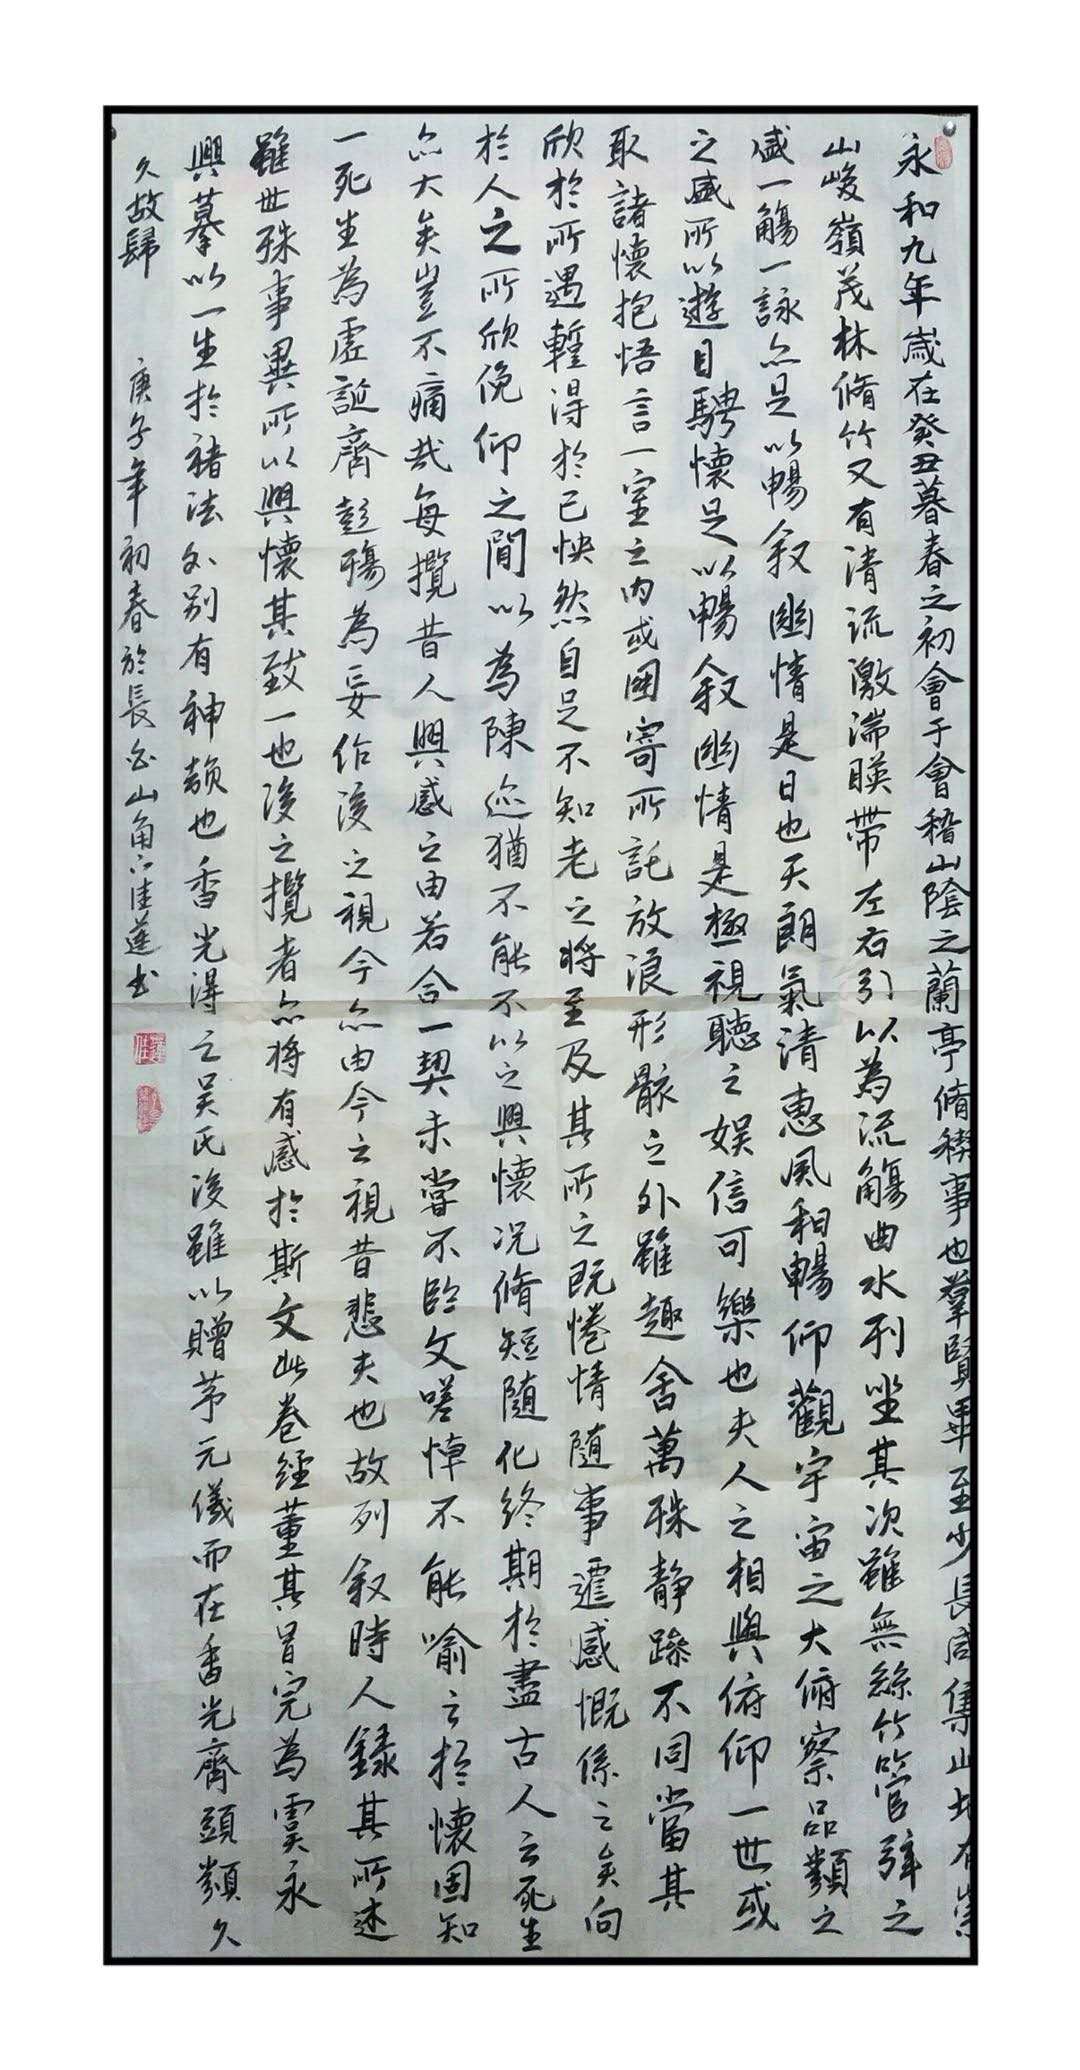 永和九年歲在癸丑暮春之初會于會稽山陰之蘭亭脩稧事也羣賢畢至少長咸集此地有崇
山峻嶺茂林脩竹又有清流激湍暎帶左右引以為流觴曲水列坐其次雖無絲竹管弦之
盛一觴一詠亦足以暢叙幽情是日也天朗氣清惠風和暢仰觀宇宙之大俯察品類之
之盛所以遊目騁懷足以暢叙幽情是極視聽之娛信可樂也夫人之相與俯仰一世或
取諸懷抱悟言一室之內或因寄所託放浪形骸之外雖趣舍萬殊静躁不同當其
欣於所遇蹔得於己怏然自足不知老之將至及其所之既惓情隨事遷感慨係之矣向
於人之所欣俛仰之間以為陳迹猶不能不以之興懷況脩短隨化終期於盡古人云死生
亦大矣豈不痛哉每攬昔人興感之由若合一契未嘗不臨文嗟悼不能喻之於懷固知
一死生為虛誕齊彭殤為妄作後之視今亦由今之視昔悲夫也故列叙時人録其所述
雖世殊事異所以興懷其致一也後之攬者亦將有感於斯文此卷經董其昌定為虞永
興摹以一生於褚法外别有神韻也香光得之吴氏後雖以贈茅元儀而在香光齋頭類久
久故歸 庚子年初春於長白山角下佳蓮书